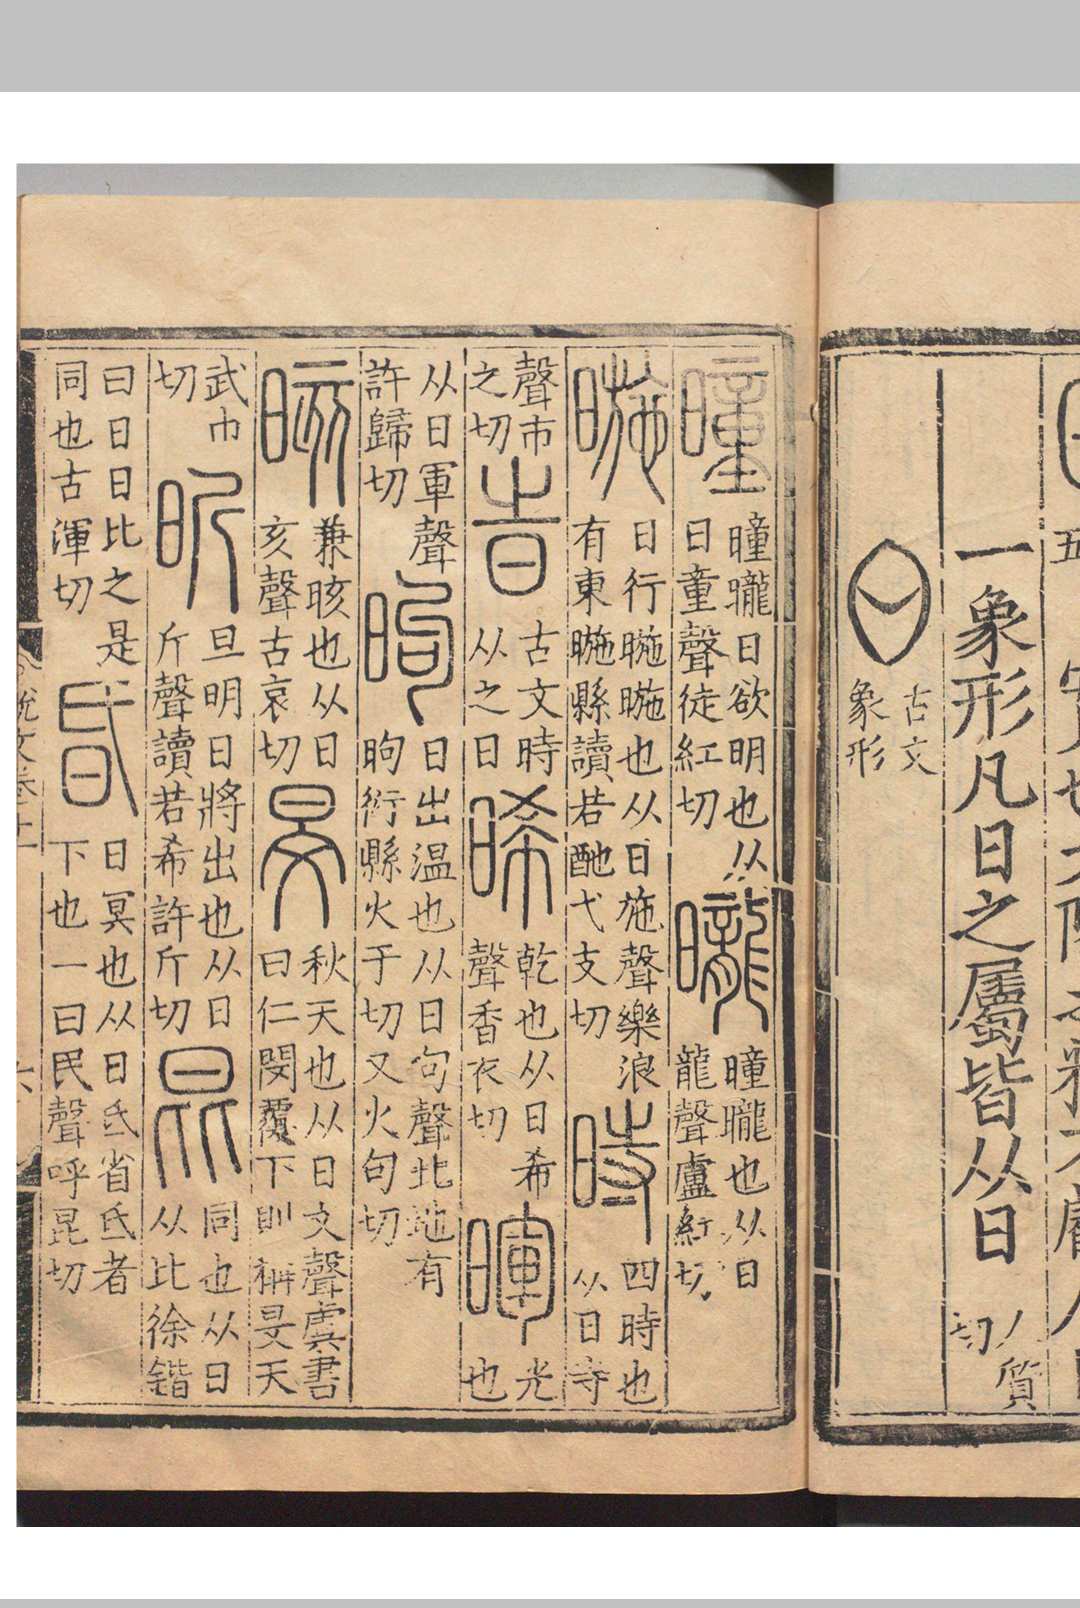 一象形凡日之屬皆从日
人質
切
古文
象形
曈
曈曨日欲明也从
日童聲徒紅切
曨
曈曨也从日
龍聲盧紅切
暆
日行暆暆也从日施聲樂浪
有東暆縣讀若酏弋支切
時
四時也
从日寺
聲市
之切
旹
古文時
从之日
晞
乾也从日希
聲香衣切
暉
光
也
从日軍聲
許歸切
昫
日出温也从日句聲北地有
昫衍縣火于切又火句切
晐
兼晐也从日
亥聲古哀切
旻
秋天也从日文聲虞書
曰仁閔覆下則稱旻天
武巾
切
昕
旦明日將出也从日
斤聲讀若希許斤切
昆
同也从日
从比徐鍇
曰日日比之是
同也古渾切
昏
日冥也从日氐省氐者
下也一曰民聲呼昆切